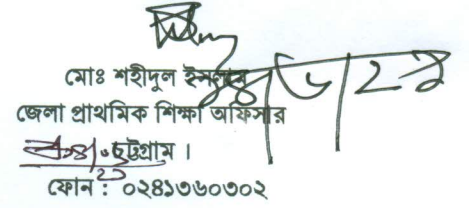 মোঃ শহীদুল ইসলাম
জেলা প্রাথমিক শিক্ষা অফিসার
চট্টগ্রাম ।
ফোন : ০২৪১৩৬০৩০২